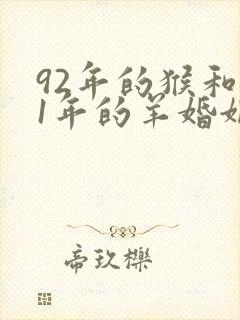 92年的猴和
1年的羊婚
帝玖櫟